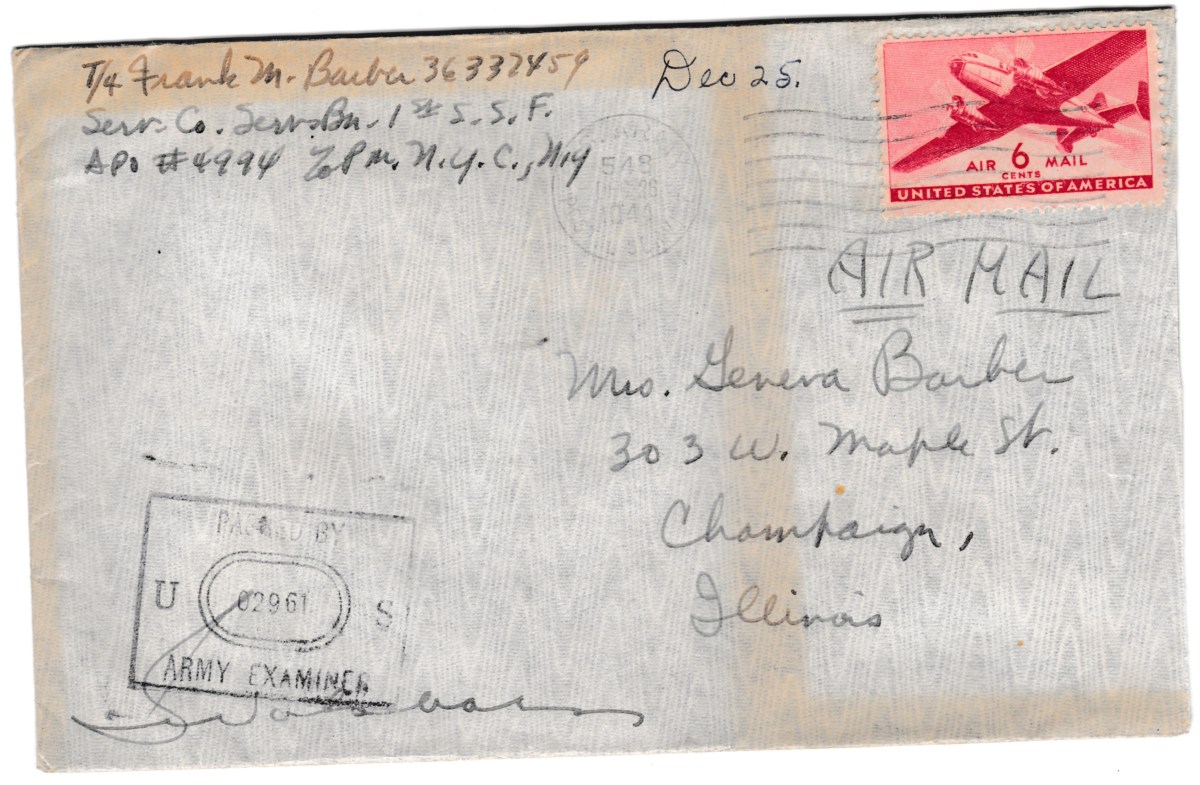 T/4 Frank M. Barber 36337459
Serv. Co. Serv. Bn. 1st S. S. F.
APO #4994 % P.M. N.Y.C., N.Y
Dec 25.
548
1944
AIR 6 MAIL
CENTS
UNITED STATES OF AMERICA
AIR MAIL
Mrs. Geneva Barber
303 W. Maple St.
Champaign,
Illinois
PASSED BY
U 02961 S
ARMY EXAMINER